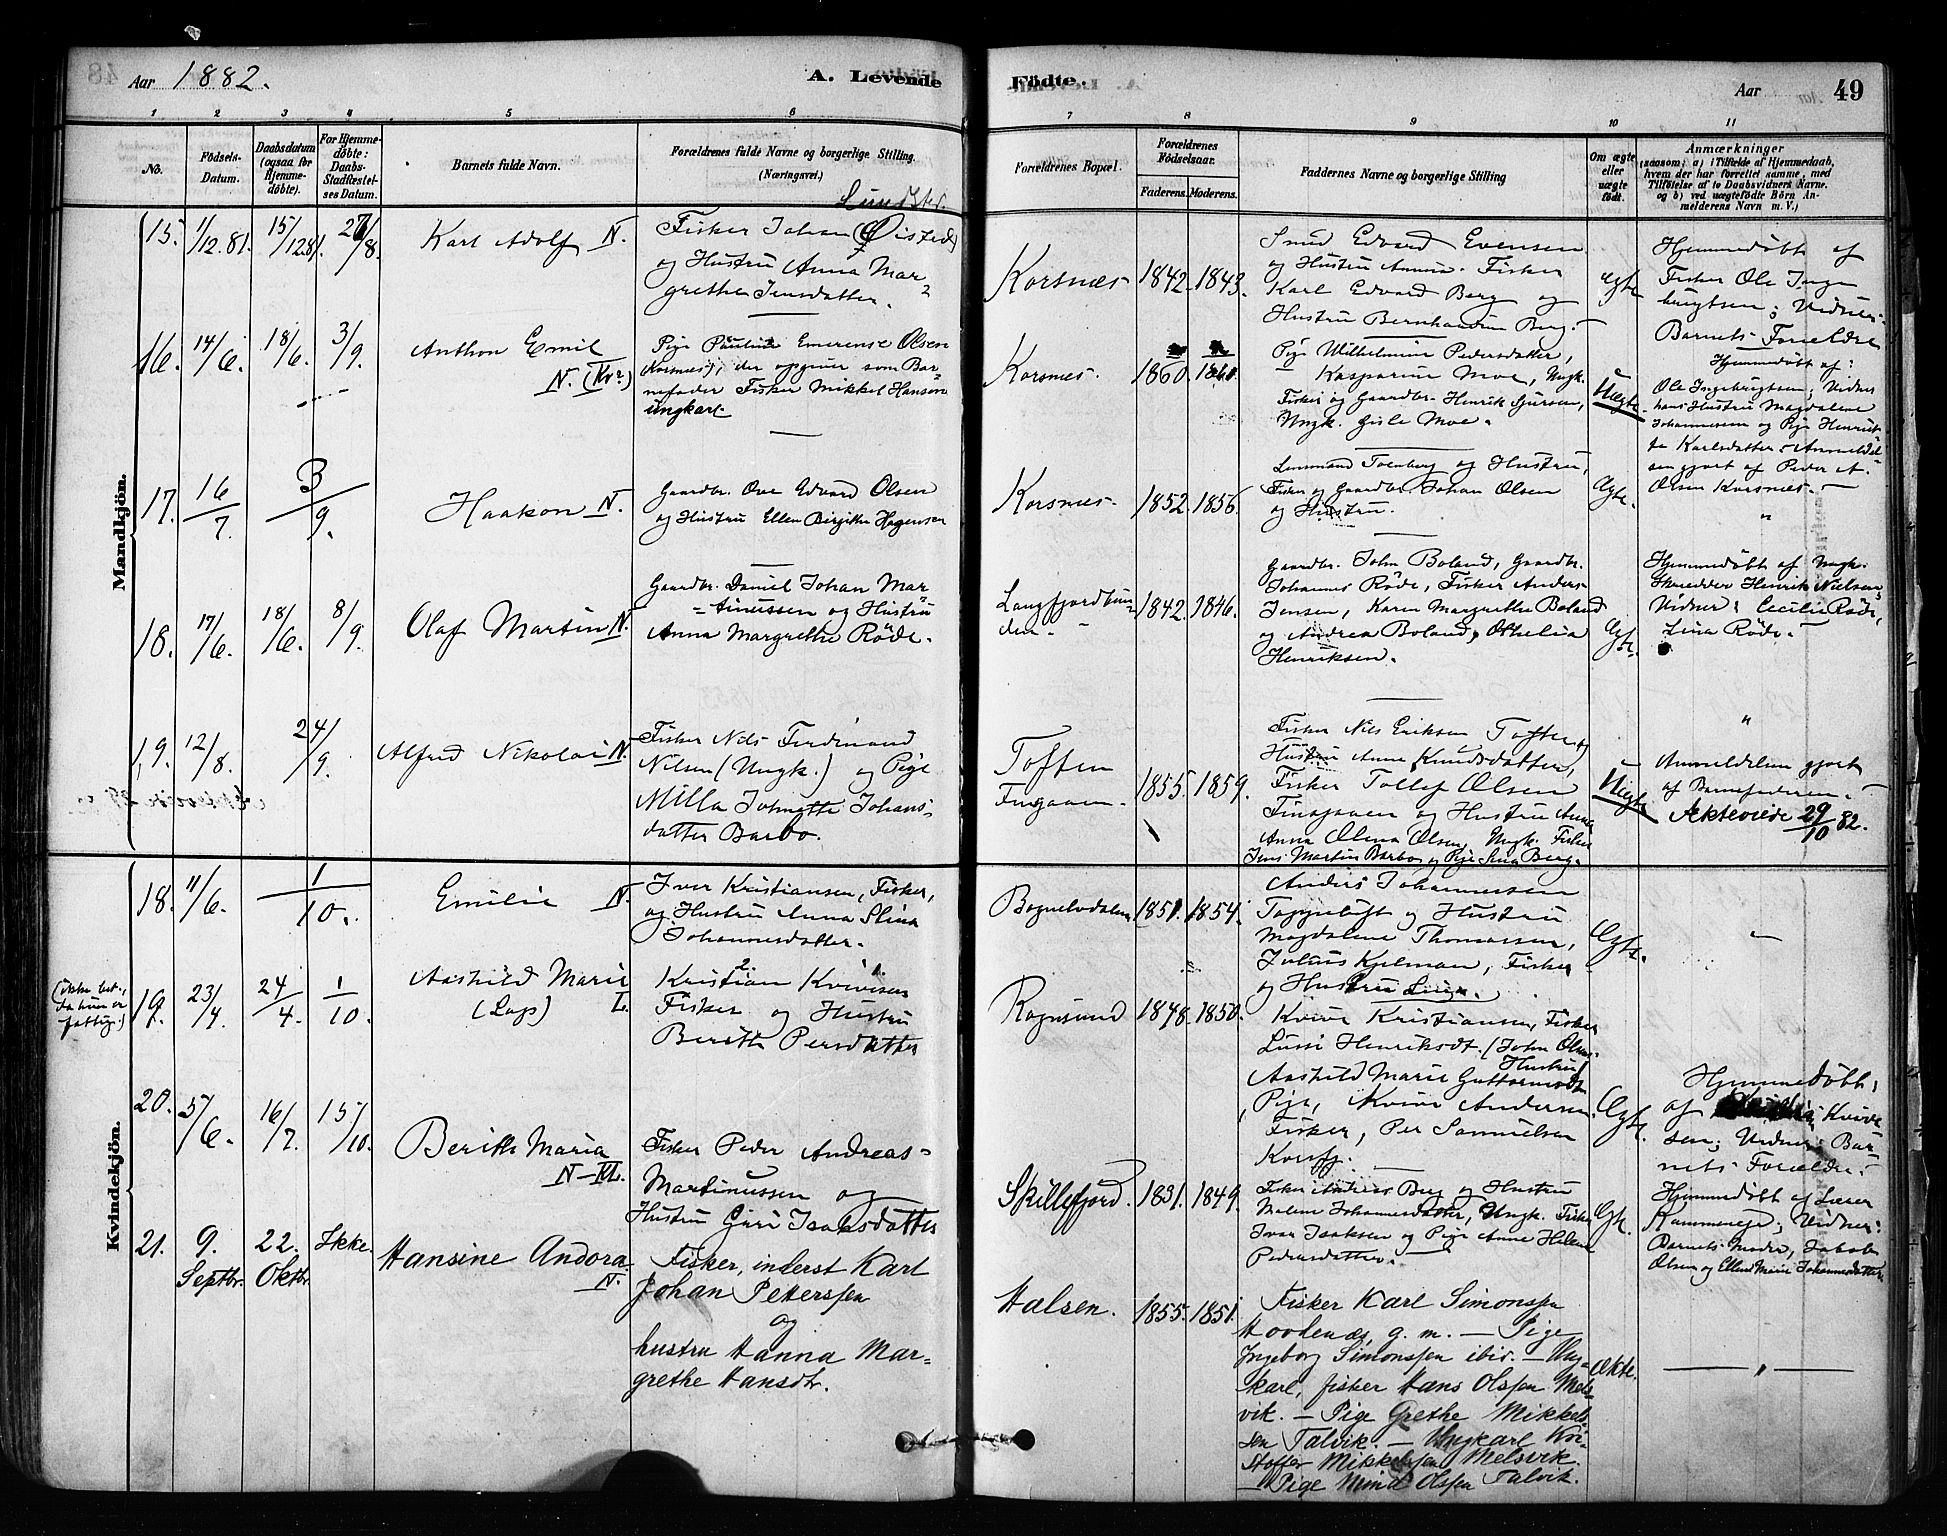 Aar 1882.
A. Levende
Födte.
Aar
49
1
2
3
4
5
6
7
8
9
10
11
No.
Födsels-
Datum.
Daabsdatum
(ogsaa for
Hjemme-
döbte).
For Hjemme-
döbte:
Daabs-
Stadfæstel-
ses Datum.
Barnets fulde Navn.
Forældrenes fulde Navne og borgerlige Stilling.
(Næringsvei.)
Forældrenes Bopæl.
Forældrenes
Födselsaar.
Faderens.
Moderens.
Faddernes Navne og borgerlige Stilling
Om ægte
eller
uægte
födt.
Anmærkninger
(saasom: a) i Tilfælde af Hjemmedaab,
hvem der har forrettet samme, med
Tilföielse af to Daabsvidners Navne.
og b) ved uægtefödte Börn An-
melderens Navn m. V.)
Mandkjön.
15.
1/12.81.
15/12.81.
27/8.
Karl Adolf N.
Fisker Johan (Øisted)
og Hustru Anna Mar-
grethe Jensdatter.
Korsnæs
1842.
1843.
Smed Edvard Evensen
og Hustru Anna. Fisker
Karl Edvard Berg og
Hustru Bernhardine Berg.
Hjemmedøbt af
Fisker Ole Inge
brigtsen; Vidner:
Barnets Forældre
16.
14/6.
18/6.
3/9.
Anthon Emil
N. (Kv.)
Pige Pauline Emerense Olsen
Korsnæs, der opgiver som Bar-
nefader Fisker Mikkel Hansen
ungkarl.
Korsnæs.
1860.
1860.
Pige Wilhelmine Pedersdatter,
Kasparine Moe, Ungk.
Fisker og Gaardbr. Henrik Sjursen,
Ungk. Gisle Moe.
Uægte.
Hjemmedøbt af:
Ole Ingebrigtsen; Vidner
hans Hustru Magdalene
Johannessen og Pige Henriet-
te Karlsdatter. Anmeldel-
sen gjort af Peder A.
Olsen Korsnæs.
17.
16/7.
3/9.
Haakon N.
Gaardbr. Ove Edvard Olsen
og Hustru Ellen Birgitte Hagensen
Korsnæs
1852.
1856.
Lensmand Toenberg og Hustru,
Fisker og Gaardbr. Johan Olsen
og Hustru.
Egte.
"
18.
17/6.
18/6.
8/9.
Olaf Martin N.
Gaardbr. Daniel Johan Mar-
tinussen og Hustru
Anna Margrethe Röde.
Langfjordbun-
den.
1842.
1846.
Gaardbr. John Boland, Gaardbr.
Johannes Röde, Fisker Anders
Jensen, Karen Margrethe Boland
og Andrea Boland, Othelia
Henriksen.
Egte.
Hjemmedøbt af Ungk.
Skredder Henrik Nielsen;
Vidner: Cecilie Röde,
Lina Röde.
19.
12/8.
24/9.
Alfred Nikolai N.
Fisker Nils Ferdinand
Nilsen (Ungk.) og Pige
Milla Johnette Johans-
datter Barbo.
Toften
1855.
1859.
Fisker Nils Eriksen Toften og
Hustru Anne Knudsdatter,
Fisker Tollef Olsen
og Hustru Anne
Anna Olena Olsen, Ungk. Fisker
Jens Martin Barbo og Pige Lina Berg.
Uegte
"
Anmeldelsen gjort
af Barnefaderen.
Aktevie­de 29/10 82.
Kvindekjön.
18.
11/6.
1/10.
Emilie N.
Iver Kristiansen, Fisker,
og Hustru Anna Stina
Johannesdatter.
Bognelvdalen
1851.
1854.
Anders Johannessen
Toppeluft og Hustru
Magdalene Thomassen,
Julius Kjelman, Fisker
og Hustru Lina.
Egte.
"
(ikke bet.,
da hun er
fattig.)
19.
23/4.
24/4.
1/10.
Aashild Marie
(Lap) L.
Kristian Kvivesen
Fisker og Hustru
Berith Persdatter
Rognsund
1848.
1850.
Kvive Kristiansen, Fisker
Lussi Henriksdt. (John Olsens
Hustru)
Aashild Marie Guttormsdt.
Pige, Kvive Andersen
Fisker, Per Samuelsen
Korsfj.
Egte.
Hjemmedøbt
af Kvive
sen; Vidner: Bar
nets Forældre.
20.
5/6.
16/7.
15/10.
Berith Maria
N-KL.
Fisker Peder Andreas
Martinussen og
Hustru Guri Isaksdatter
Skillefjord.
1831.
1849.
Fisker Andreas Berg og Hustru
Malene Johannesdatter, Ungk. Fisker
Ivar Isaksen og Pige Anne Helene
Pedersdatter.
Egte.
Hjemmedøbt af Lærer
Kammeneje; Vidner:
Barnets Moder, Jakob
Olsen og Ellen Marie Johannesdatter
21.
9.
Septbr.
22.
Oktbr.
Ikke.
Hansine Andora.
N.
Fisker, inderst Karl
Johan Petterssen
og
hustru Hanna Mar-
grethe Hansdtr.
Halsen.
1855.
1851.
Fisker Karl Simonssen
g. m. — Pige
Ingeborg Simonssen ibid. — Ung-
karl, fisker Hans Olssen Mels-
vik. — Pige Grethe Mikkel-
sen Talvik. — Ungkarl Kri-
stoffer Mikkelssen Melsvik.
— Pige Mina Olssen Talvik.
Ækte.
"